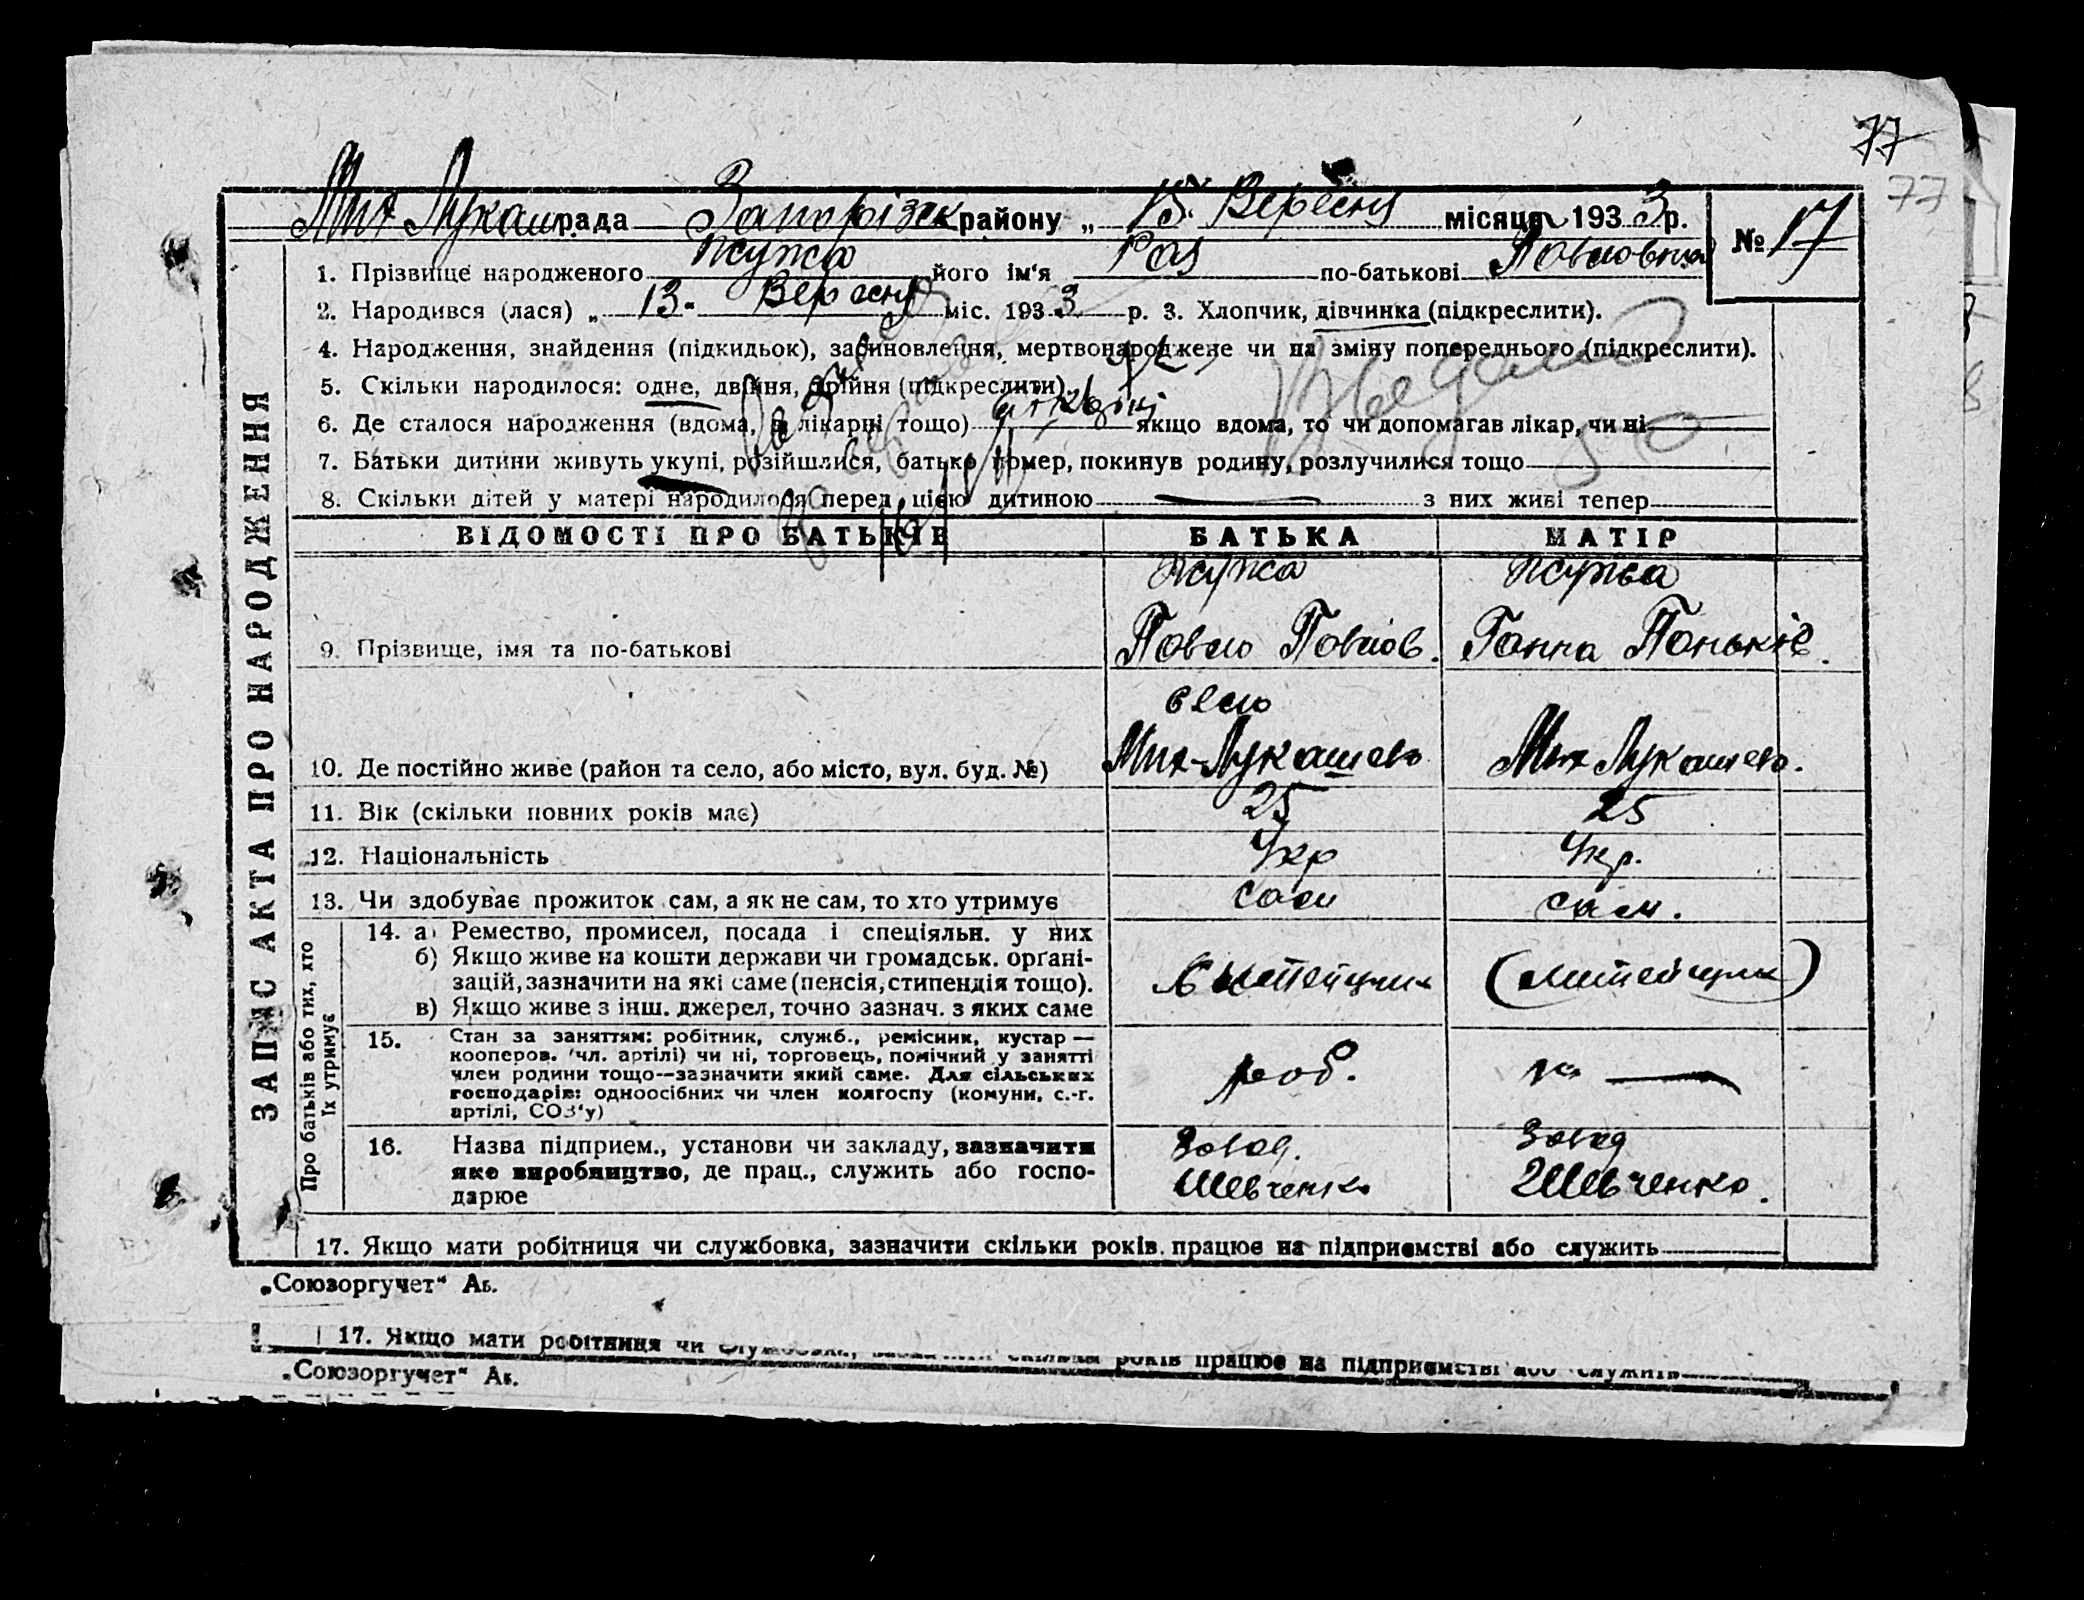 77
77
Мих Лукаш рада Запорізьк району „ 15 Вересня місяця 1933 р.
№ 17
1. Прізвище народженого його ім'я Рая по-батькові Павловна
2. Народився (лася) „ 13 " Вересня міс. 1933 р. 3. Хлопчик, дівчинка (підкреслити).
4. Народження, знайдення (підкидьок), зasиновлення, мертвонароджене чи на зміну попереднього (підкреслити).
5. Скільки народилося: одне, двійня, трійня (підкреслити)
6. Де сталося народження (вдома, в лікарні тощо) якщо вдома, то чи допомагав лікар, чи ні
7. Батьки дитини живуть укупі, розійшлися, батько помер, покинув родину, розлучилися тощо
8. Скільки дітей у матері народилося перед цією дитиною — з них живі тепер
ЗАПИС АКТА ПРО НАРОДЖЕННЯ
ВІДОМОСТІ ПРО БАТЬКІВ БАТЬКА МАТІР
9. Прізвище, імя та по-батькові Павло Павлов. Ганна Паньків.
село
10. Де постійно живе (район та село, або місто, вул. буд. №) Мих-Лукашево Мих Лукашево.
11. Вік (скільки повних років має) 25 25
12. Національність Укр Укр.
13. Чи здобуває прожиток сам, а як не сам, то хто утримує сам сам.
Про батьків або тих, хто їх утримує
14. а) Ремество, промисел, посада і спеціяльн. у них
б) Якщо живе на кошти держави чи громадськ. орґані-
зацій, зазначити на які саме (пенсія, стипендія тощо). (литейщик)
в) Якщо живе з інш. джерел, точно зазнач. з яких саме
15. Стан за заняттям: робітник, служб., ремісник, кустар —
кооперов. (чл. артілі) чи ні, торговець, помічний у занятті
член родини тощо—зазначити який саме. Для сільських роб. —
господарів: одноосібних чи член колгоспу (комуни, с.-г.
артілі, СОЗ'у)
16. Назва підприєм., установи чи закладу, зазначити Завод. Завод
яке виробництво, де прац., служить або госпо- Шевченко Шевченко.
дарює
17. Якщо мати робітниця чи службовка, зазначити скільки років працює на підприємстві або служить
„Союзоргучет" Аб.
17. Якщо мати робітниця чи службовка, зазначити скільки років працює на підприємстві або служить
„Союзоргучет" Аб.